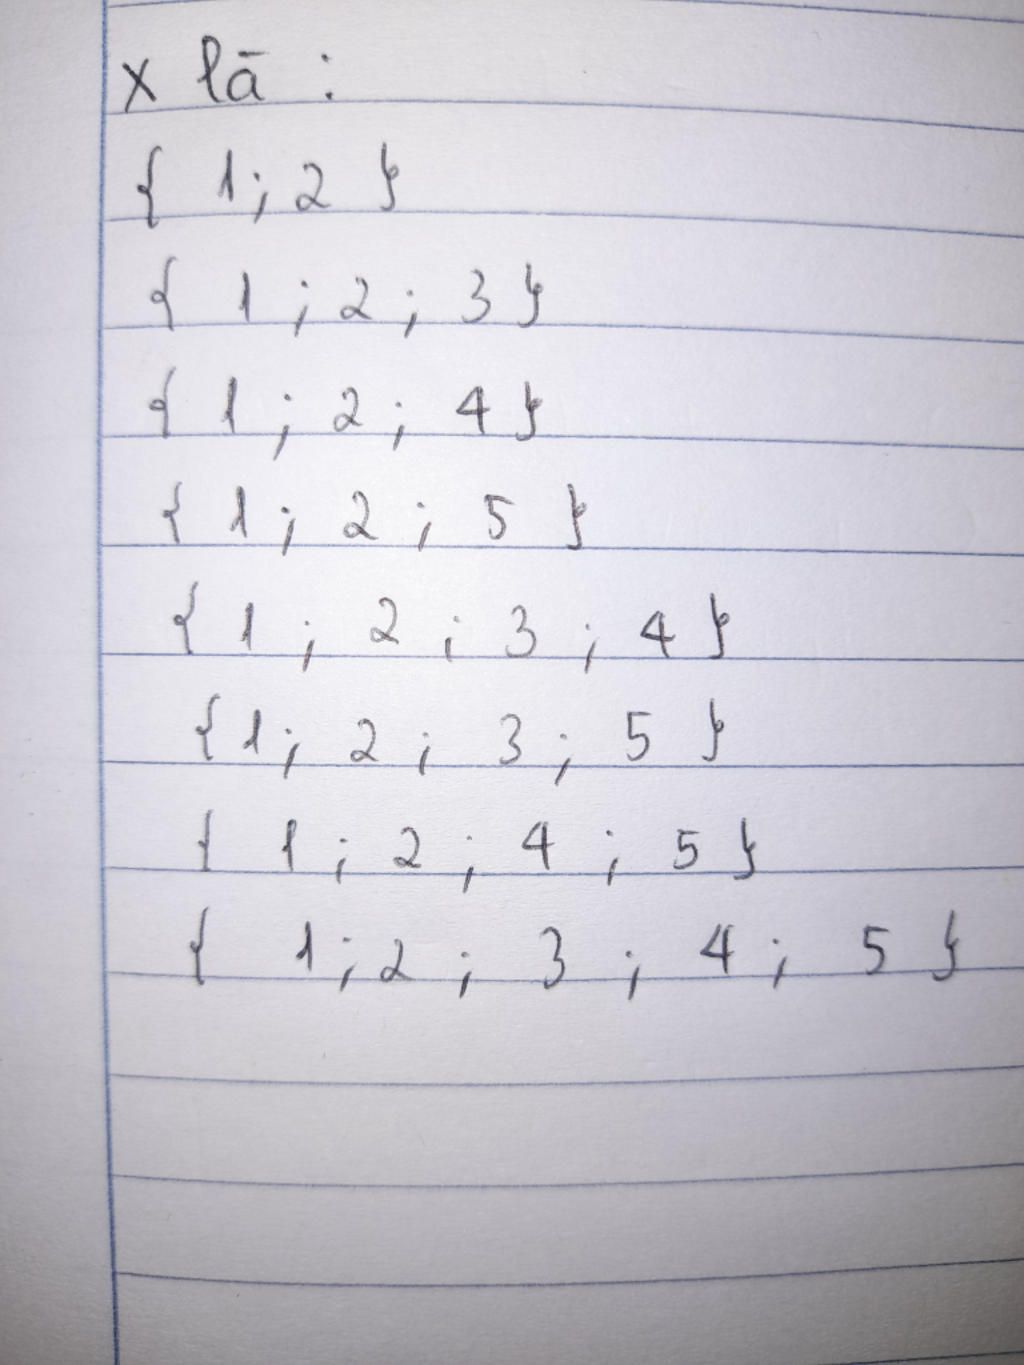 x là :
{ 1 ; 2 }
{ 1 ; 2 ; 3 }
{ 1 ; 2 ; 4 }
{ 1 ; 2 ; 5 }
{ 1 ; 2 ; 3 ; 4 }
{ 1 ; 2 ; 3 ; 5 }
{ 1 ; 2 ; 4 ; 5 }
{ 1 ; 2 ; 3 ; 4 ; 5 }